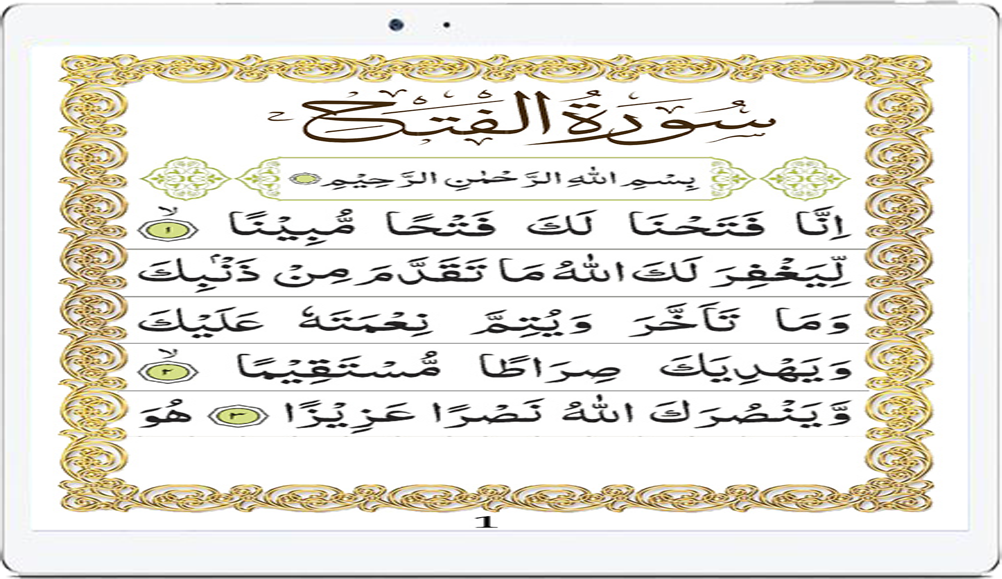 سُورَةُ الْفَتْحِ
بِسْمِ اللّٰهِ الرَّحْمٰنِ الرَّحِيْمِ
اِنَّا فَتَحْنَا لَكَ فَتْحًا مُّبِيْنًا ۙ‏ ﴿۱﴾
لِّيَغْفِرَ لَكَ اللّٰهُ مَا تَقَدَّمَ مِنْ ذَنْۢبِكَ
وَمَا تَاَخَّرَ وَيُتِمَّ نِعْمَتَهٗ عَلَيْكَ
وَيَهْدِيَكَ صِرَاطًا مُّسْتَقِيْمًا ۙ‏ ﴿۲﴾
وَّيَنْصُرَكَ اللّٰهُ نَصْرًا عَزِيْزًا ﴿۳﴾ هُوَ
1